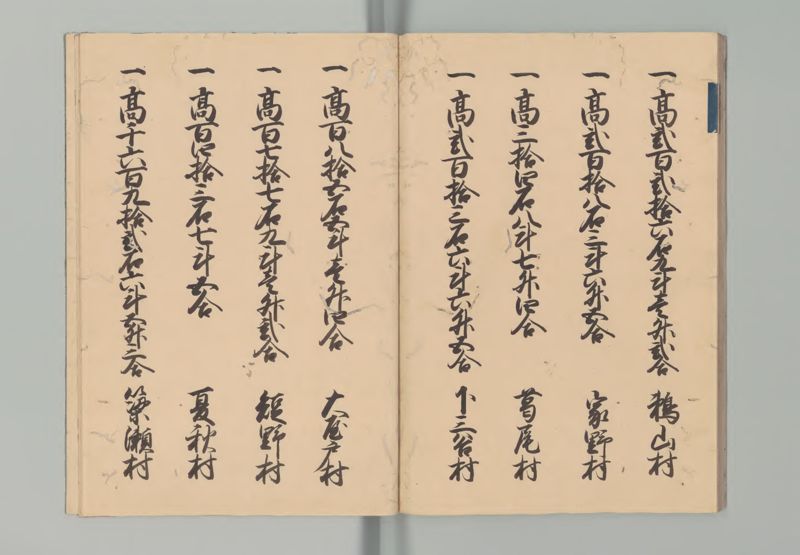 一高弐百弐拾六石九斗壱升弐合 鵜山村
一高弐百拾八石三斗六升五合 家野村
一高三拾四石八斗七升四合 葛尾村
一高弐百拾三石六斗六升五合 下三谷村
一高百八拾五石五斗壱升四合 大屋戸村
一高百七拾七石九斗壱升弐合 短野村
一高百四拾三石七斗五合 夏秋村
一高千六百九拾弐石六斗五升二合 簗瀬村